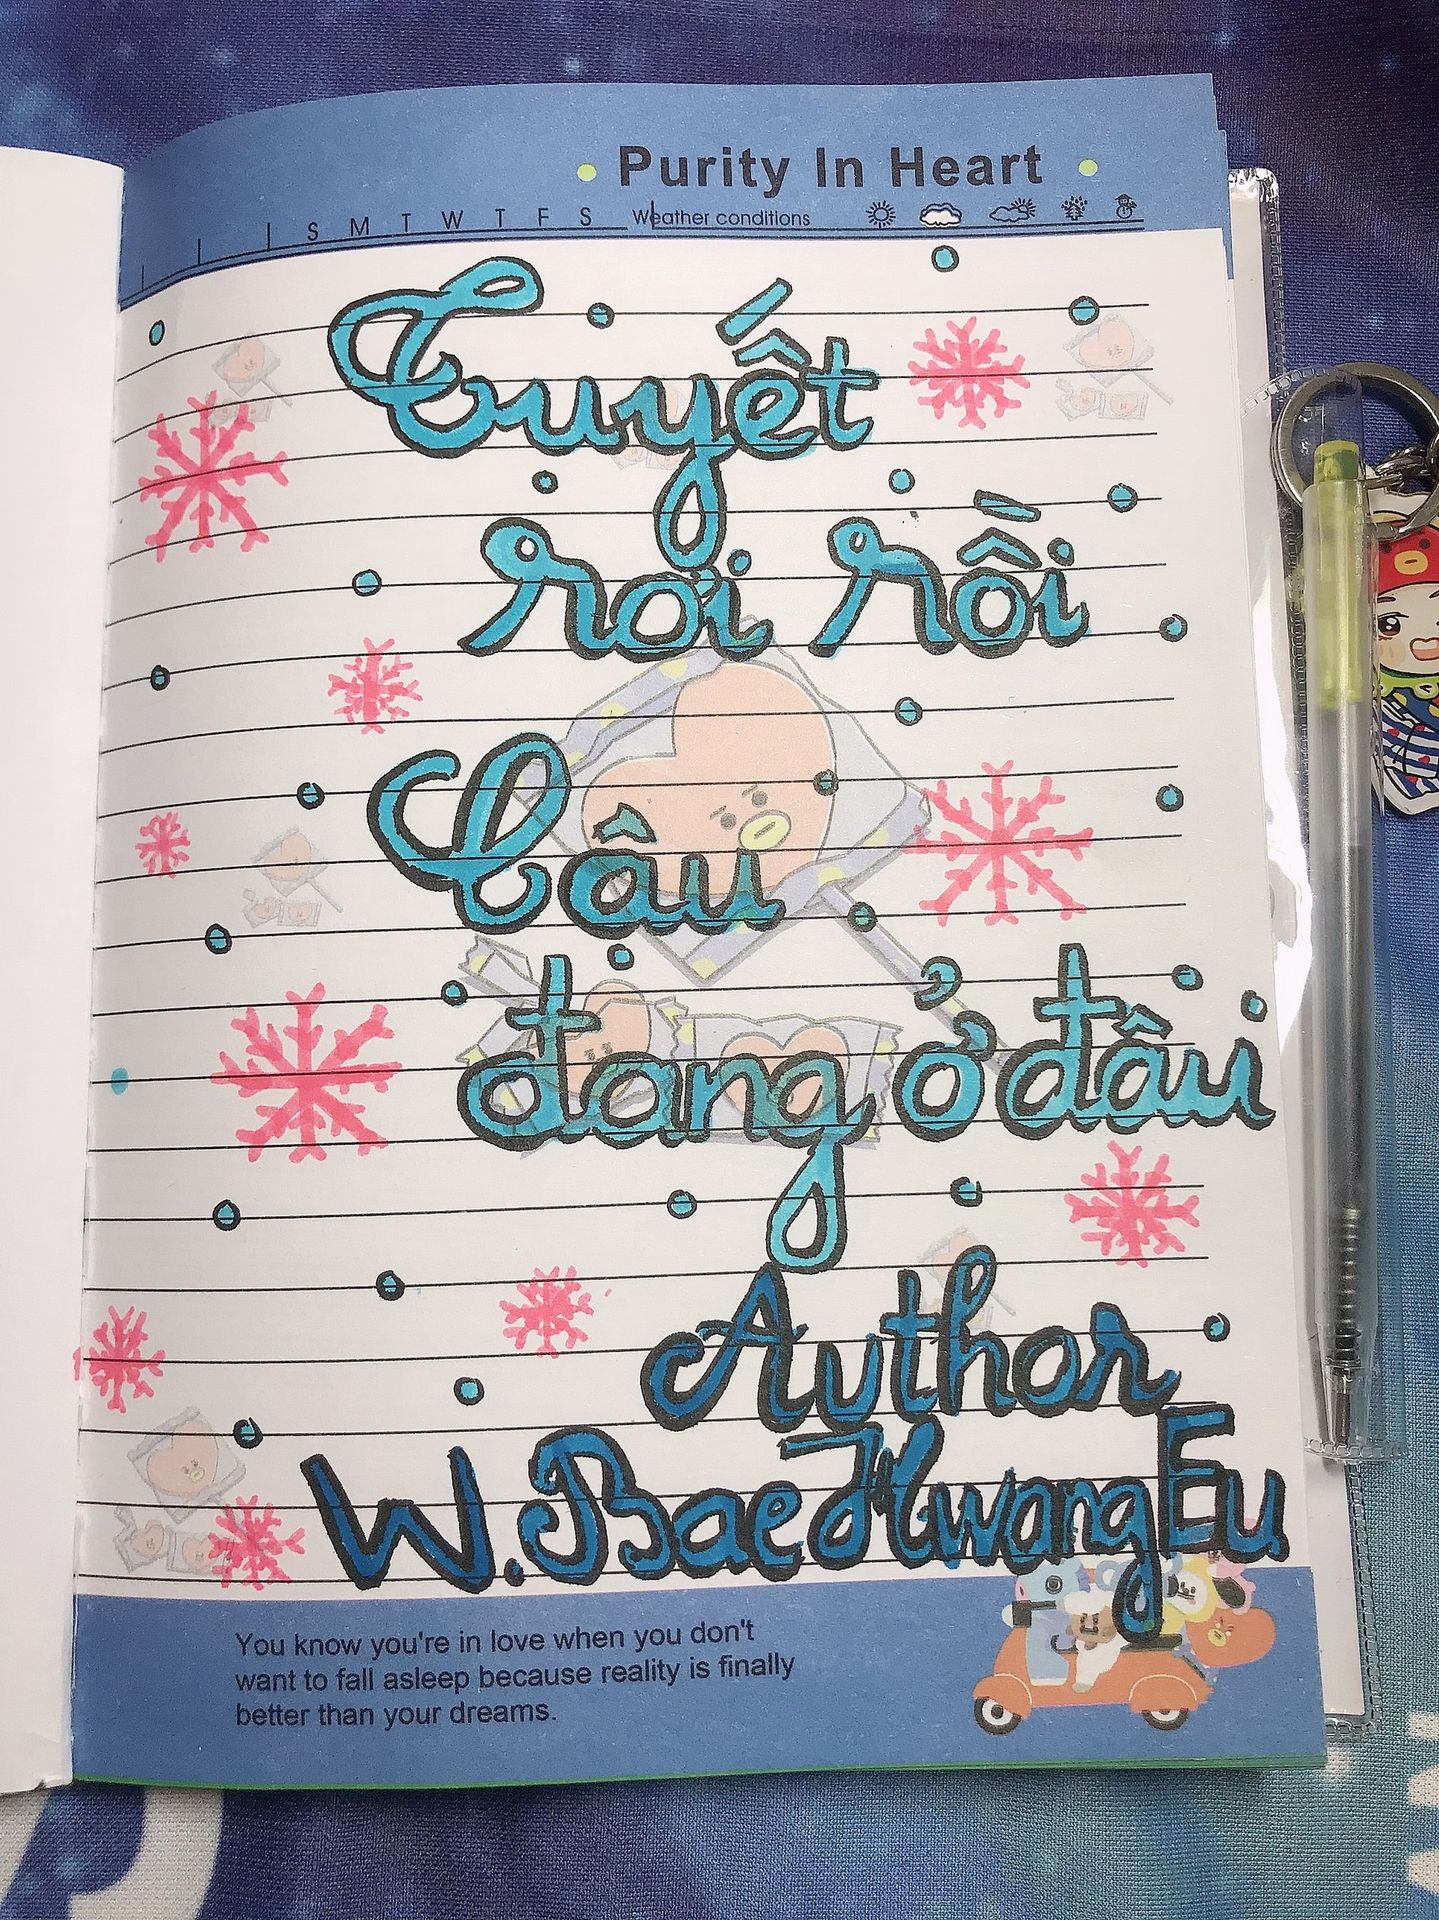 Purity In Heart
S M T W T F S Weather conditions
Tuyết
rơi rồi
Cậu
đang ở đâu
Author
W.BaeHwangEu
You know you're in love when you don't
want to fall asleep because reality is finally
better than your dreams.